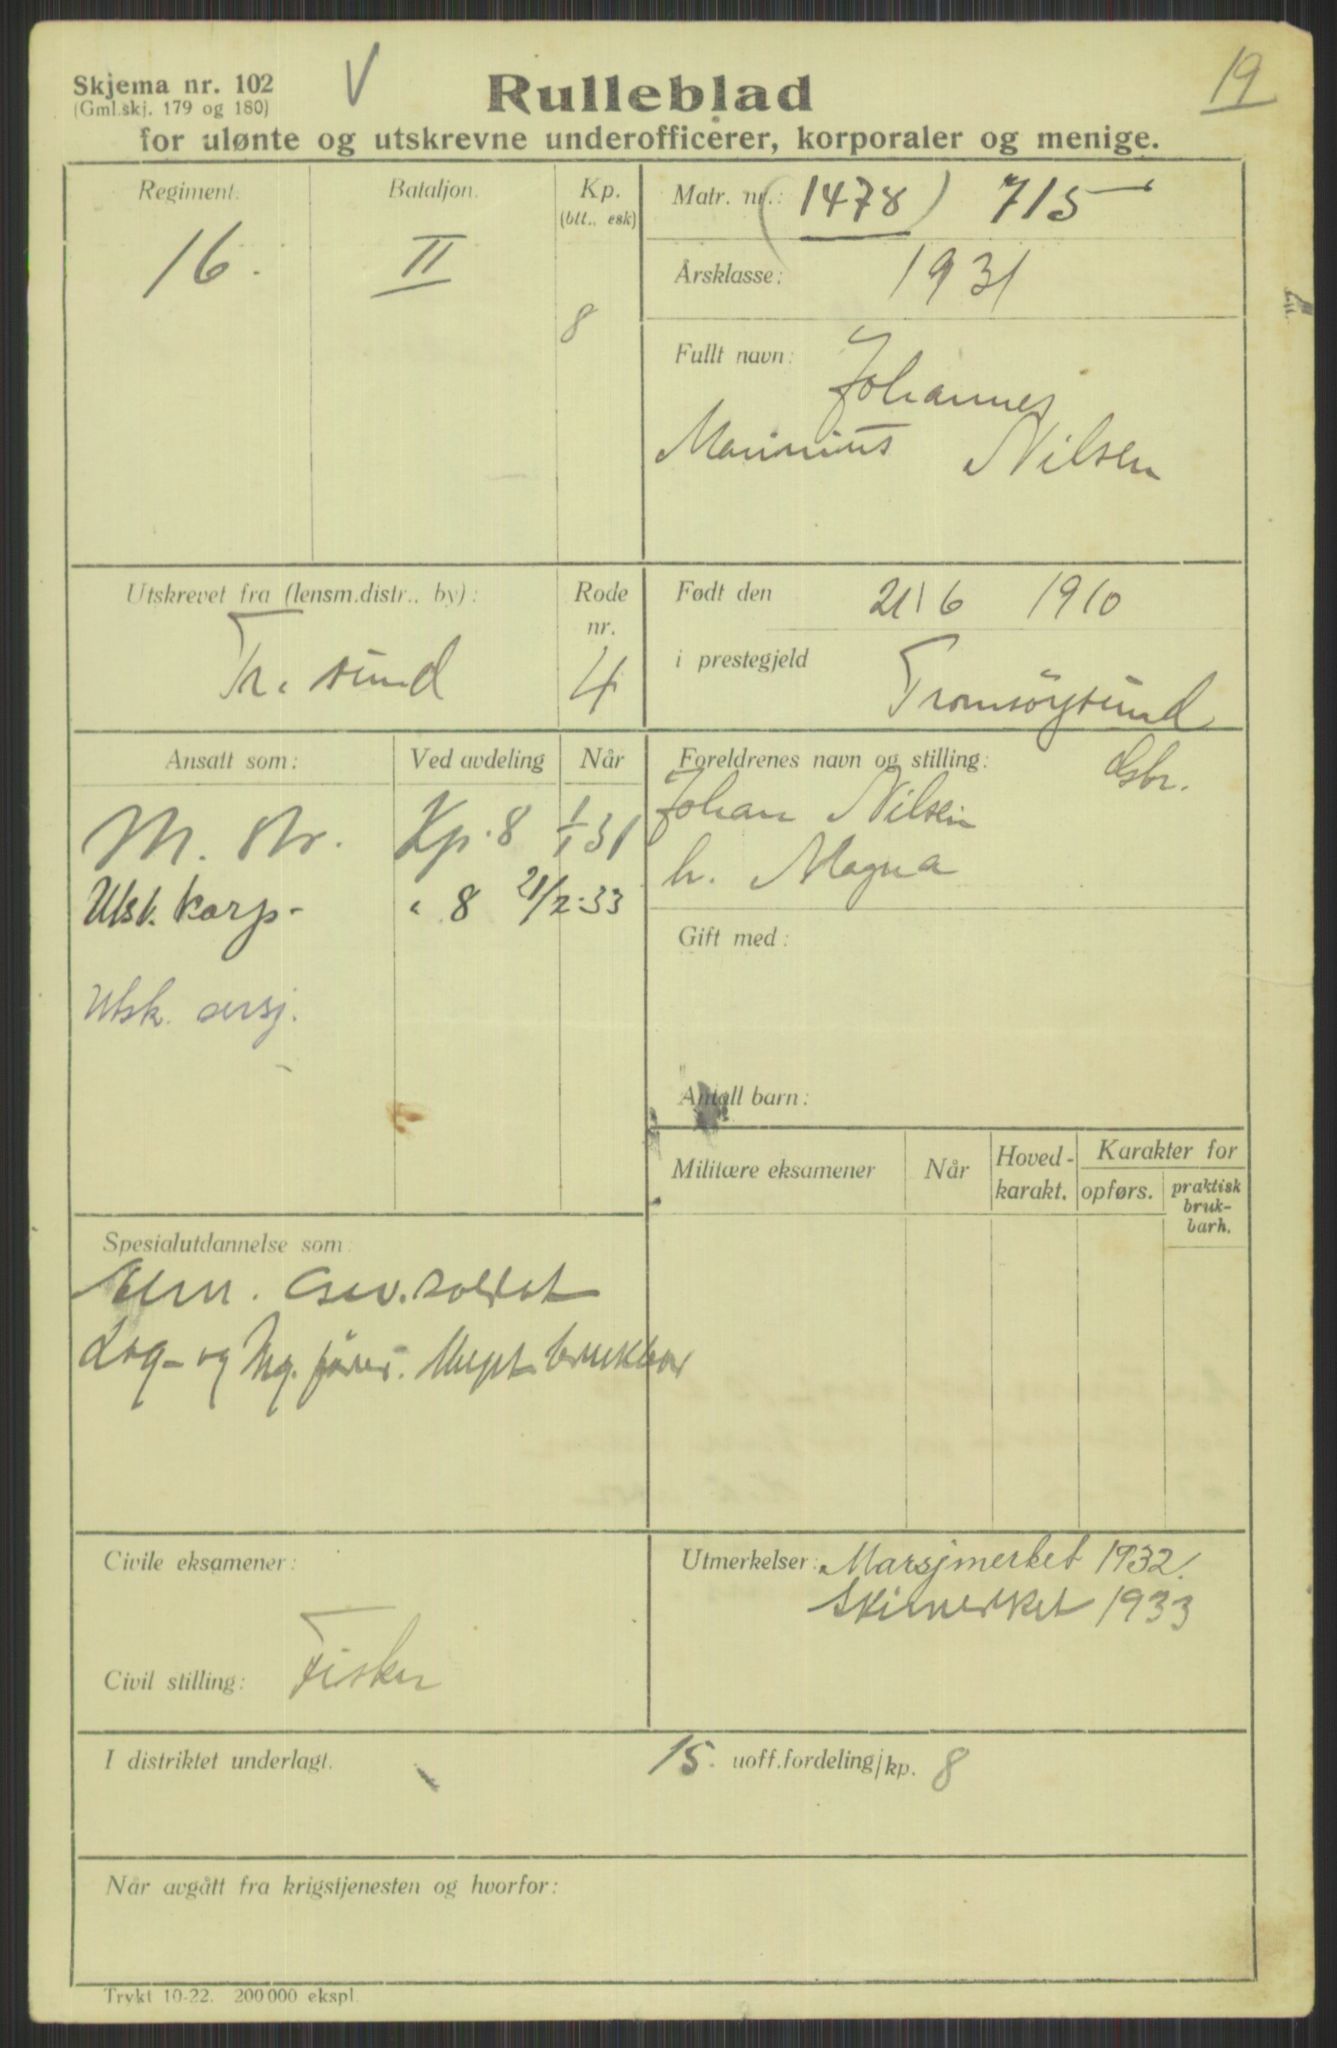 Skjema nr. 102
(Gml. skj. 179 og 180)
V
Rulleblad
19
for ulønte og utskrevne underofficerer, korporaler og menige.
Regiment.
16.
Bataljon.
II
Kp.
(btt., esk)
8
Matr. nr.: (1478) 715
Årsklasse: 1931
Fullt navn: Johannes
Marinius Nilsen
Utskrevet fra (lensm.distr., by):
Tr. sund
Rode
nr.
4
Født den 21/6 1910
i prestegjeld
Tromsöysund
Ansatt som:
Ved avdeling
Når
M. Str. Kp. 8 1/1 31
Utsk. korp. " 8 21/2-33
Utsk. sersj.
Foreldrenes navn og stilling: Gsbr.
Johan Nilsen
h. Magna
Gift med:
Antall barn:
Militære eksamener
Når
Hoved-
karakt.
Karakter for
opførs.
praktisk
bruk-
barh.
Spesialutdannelse som:
Alm. Gev. soldat
Lag- og fører. brukbar
Civile eksamener:
Civil stilling: Fisker
Utmerkelser: Marsjmerket 1932.
Skimerket 1933
I distriktet underlagt.
15. uoff.fordeling/kp. 8
Når avgått fra krigstjenesten og hvorfor:
Trykt 10-22. 200 000 ekspl.